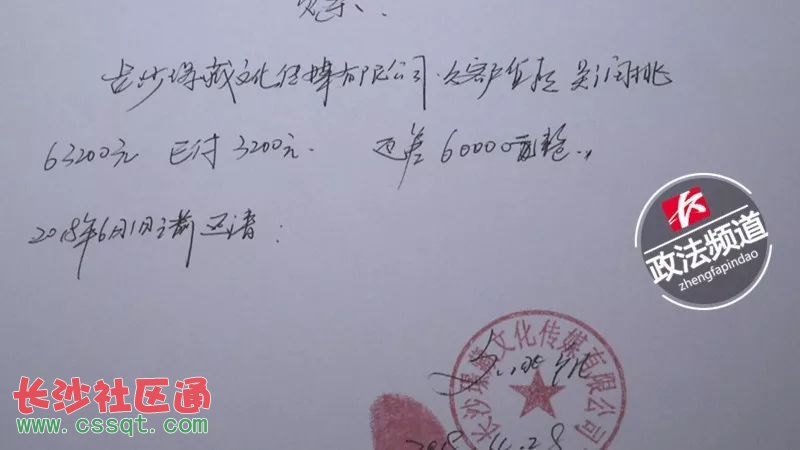 欠条:
长沙 藏文化传媒有限公司.欠客户货款 吴润桃
63200元 已付3200元. 还差60000 整.
2018年6月1日之前还清:
政法频道
zhengfapindao
长沙 文化传媒有限公司
28
长沙社区通
www.cssqt.com